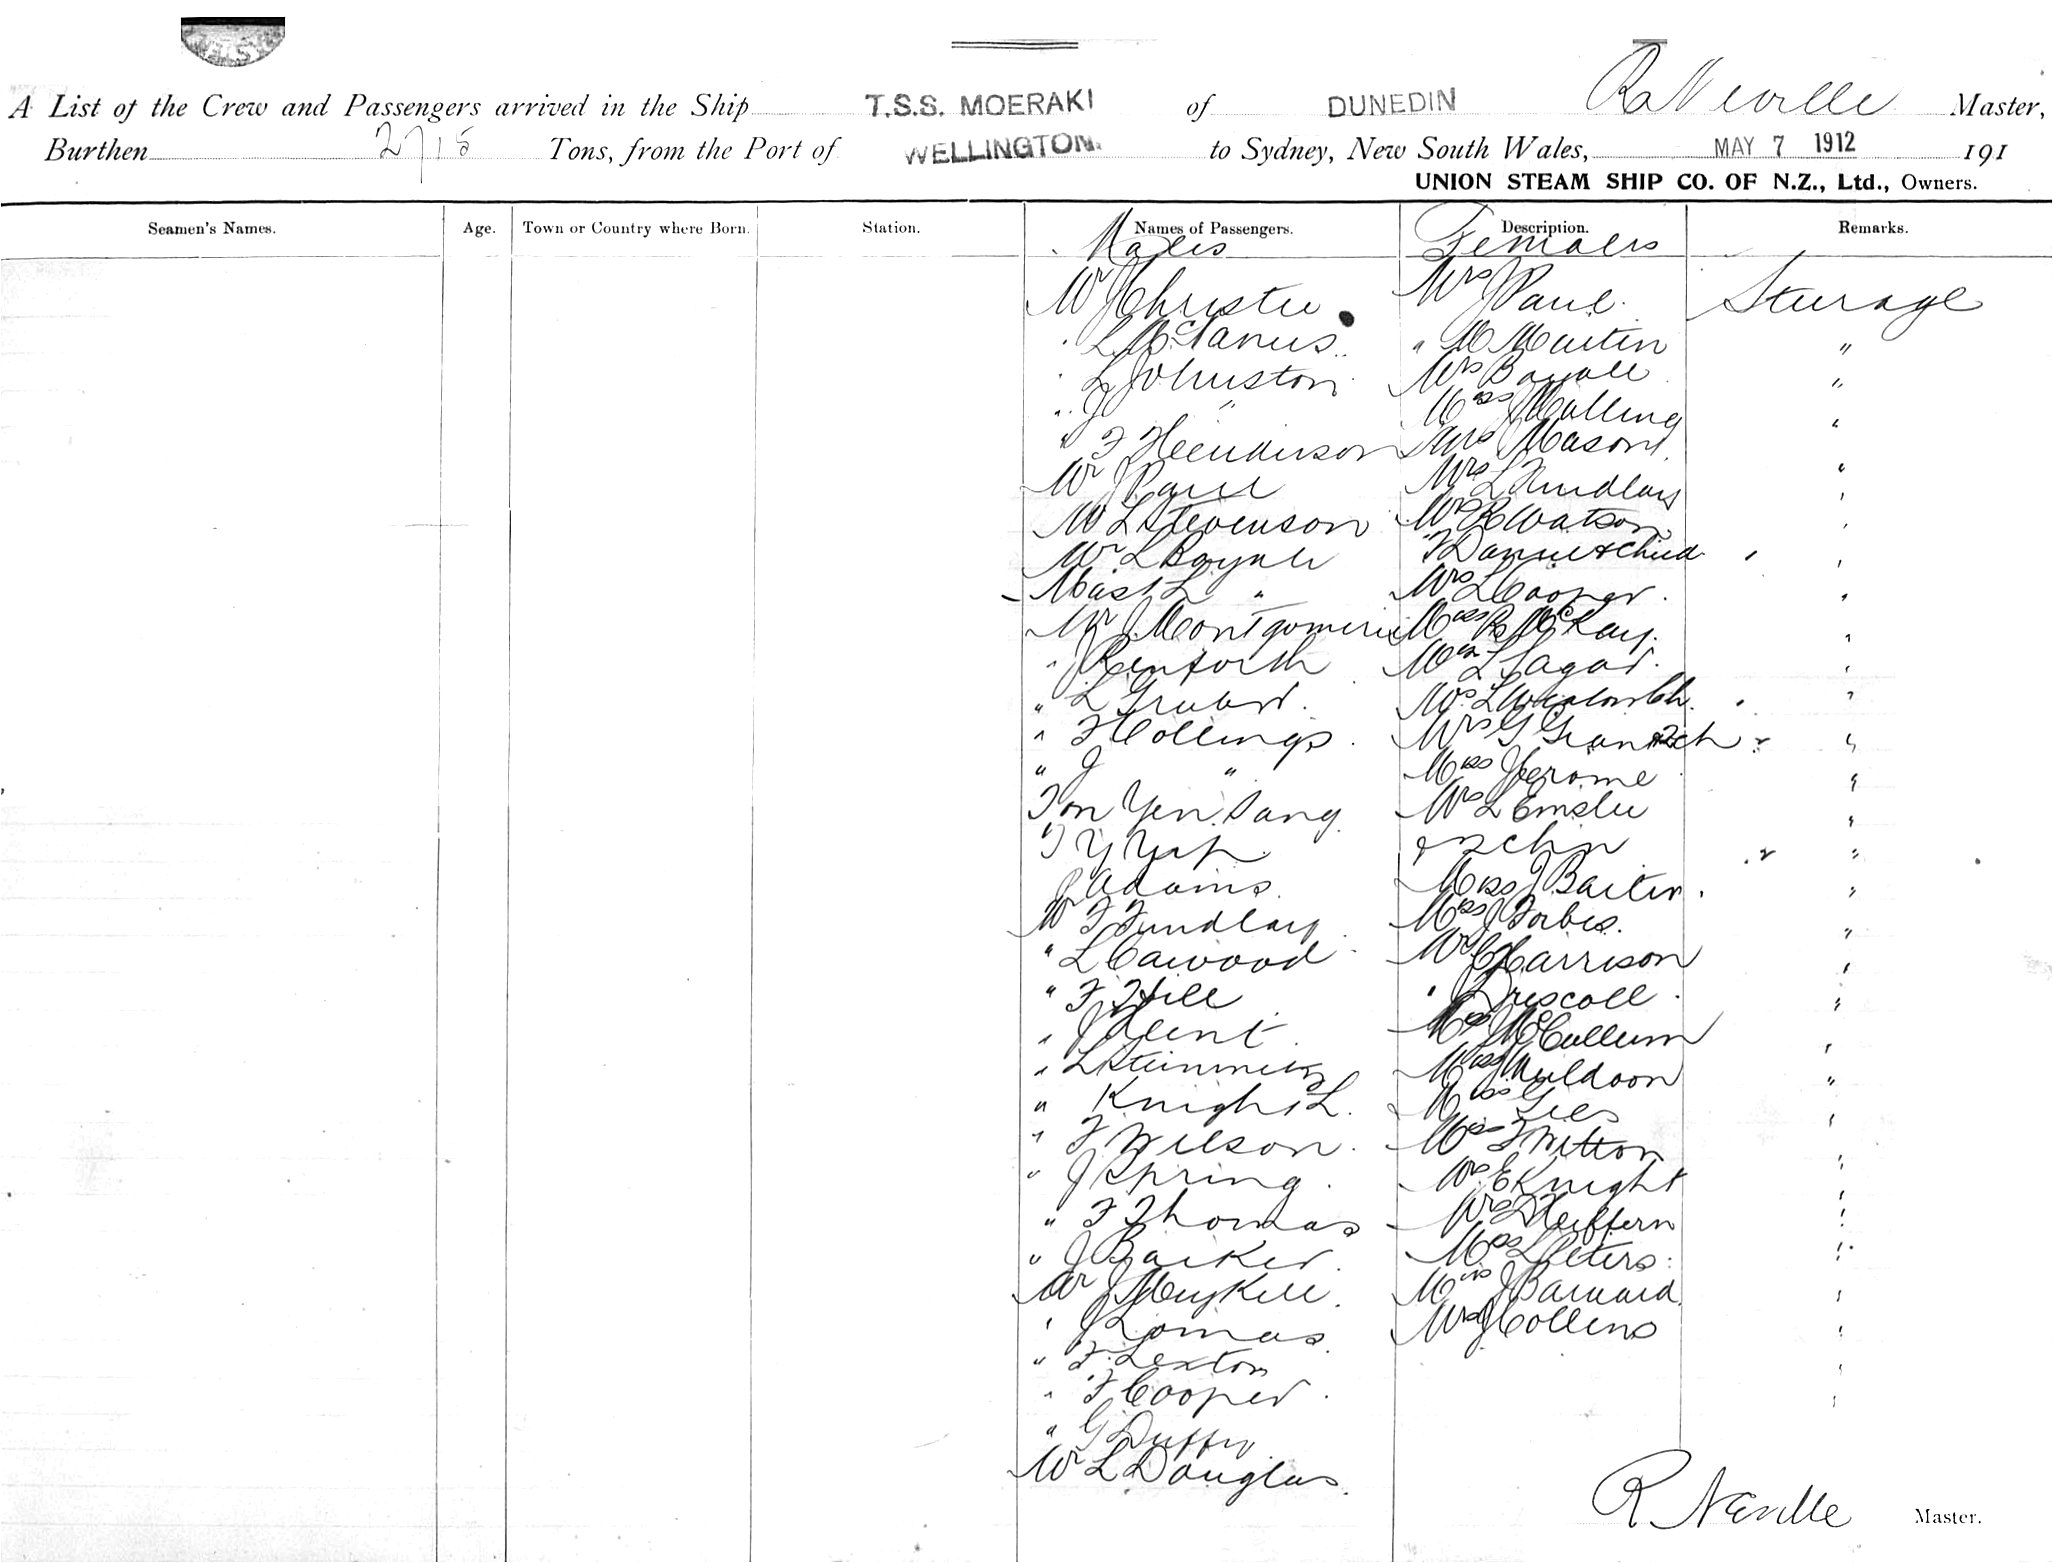 A List of the Crew and Passengers arrived in the Ship T.S.S. MOERAKI of DUNEDIN R Neville Master,
Burthen 2715 Tons, from the Port of WELLINGTON. to Sydney, New South Wales, MAY 7 1912 191
UNION STEAM SHIP CO. OF N.Z., Ltd., Owners.
Seamen's Names. Age. Town or Country where Born. Station. Names of Passengers. Description. Remarks.
Males Females
Mr J Christie Mrs J Paul Steerage
" L McManus " M Martin "
" L Johnston Mrs Boyale "
" J " Miss Malling "
" F Henderson Mrs Mason "
Mr J Paul Mrs L Findlay "
Mr L Stevenson Mrs R Watson "
Mr L Boyale & Child "
Mast L " Mrs L Cooper "
Mr J Montgomerie Miss R McKay "
" J Renforth Miss L Sagar "
" L Gruber Mrs L Ch. "
" F Collings Mrs G Gran & 2 ch 2 "
" J " Miss Jerome "
Ton Yen Sang Mrs L Emslie "
T Y Yap & 2 chn 2 "
J Adams Miss J Baxter "
Mr F Findlay Miss J Forbes "
" L Cawood Mrs C Harrison "
" F Hill " J Driscoll "
" J Kent Miss J McCullum "
" L Steinmetz Miss J Muldoon "
" Knight L. Miss Giles "
" F Wilson Miss F Witton "
" J Spring Mrs E Knight "
" F Thomas Mrs L Heffern "
" J Barker Miss L Peters "
Mr J Miss J Barnard "
" J Lomas Mrs J Collins "
" F. Lexton "
" F Cooper "
" G Duffy
Mr L Douglas
R Neville Master.